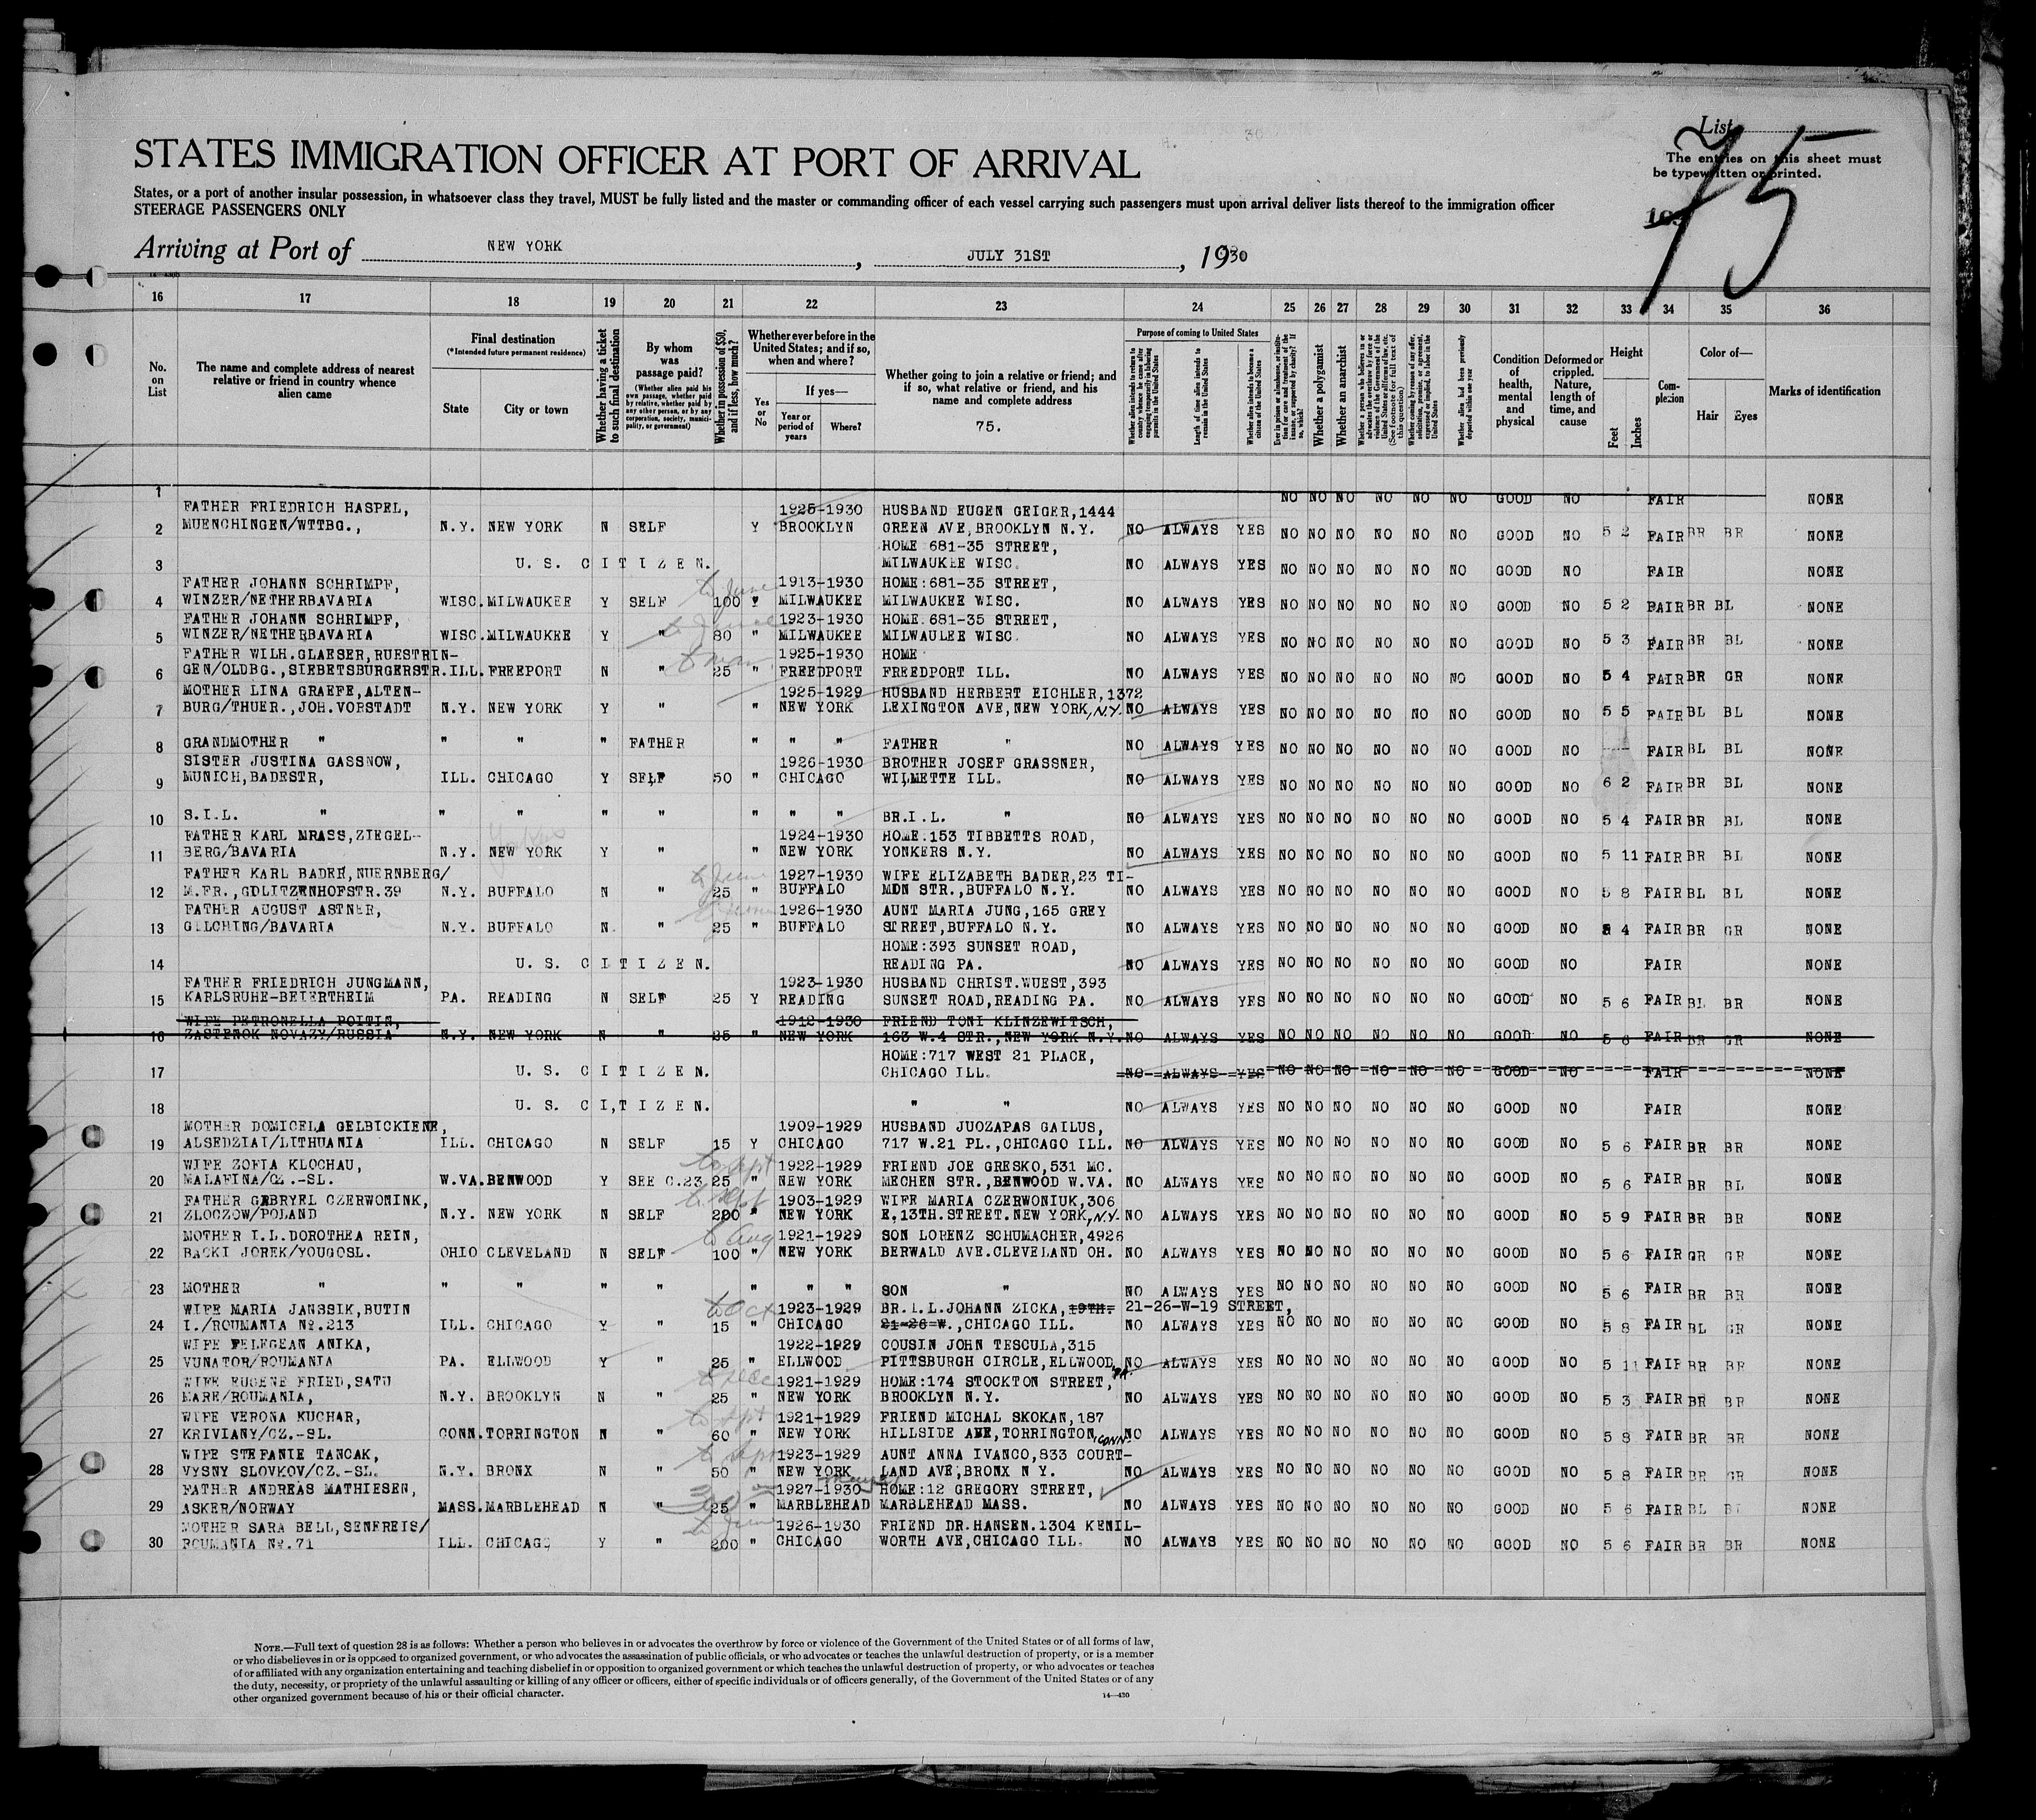 List
The entries on this sheet must
be typewritten or printed.
75
STATES IMMIGRATION OFFICER AT PORT OF ARRIVAL
States, or a port of another insular possession, in whatsoever class they travel, MUST be fully listed and the master or commanding officer of each vessel carrying such passengers must upon arrival deliver lists thereof to the immigration officer
STEERAGE PASSENGERS ONLY
Arriving at Port of NEW YORK, JULY 31ST, 1930
16 17 18 19 20 21 22 23 24 25 26 27 28 29 30 31 32 33 34 35 36
No. on List
The name and complete address of nearest relative or friend in country whence alien came
Final destination
(*Intended future permanent residence)
State
City or town
Whether having a ticket to such final destination
By whom was passage paid?
(Whether alien paid his own passage, whether paid by relative, whether paid by any other person, or by any corporation, society, municipality, or government)
Whether in possession of $50, and if less, how much?
Whether ever before in the United States; and if so, when and where?
Yes or No
If yes—
Year or period of years
Where?
Whether going to join a relative or friend; and if so, what relative or friend, and his name and complete address
75.
Purpose of coming to United States
Length of time alien intends to remain in the United States
Whether alien intends to become a citizen of the United States
Whether a polygamist
Whether an anarchist
Whether alien had been previously deported within one year
Condition of health, mental and physical
Deformed or crippled. Nature, length of time, and cause
Height
Feet
Inches
Complexion
Color of—
Hair
Eyes
Marks of identification
1 NO NO NO NO NO NO GOOD NO FAIR NONE
FATHER FRIEDRICH HASPEL, 1925-1930 HUSBAND EUGEN GEIGER,1444
2 MUENCHINGEN/WTTBG., N.Y. NEW YORK N SELF Y BROOKLYN GREEN AVE,BROOKLYN N.Y. NO ALWAYS YES NO NO NO NO NO NO GOOD NO 5 2 FAIR BR BR NONE
HOME 681-35 STREET,
3 U. S. CITIZEN. MILWAUKEE WISC. NO ALWAYS YES NO NO NO NO NO NO GOOD NO FAIR NONE
FATHER JOHANN SCHRIMPF, to June 1913-1930 HOME:681-35 STREET,
4 WINZER/NETHERBAVARIA WISC. MILWAUKEE Y SELF 100 Y MILWAUKEE MILWAUKEE WISC. NO ALWAYS YES NO NO NO NO NO NO GOOD NO 5 2 FAIR BR BL NONE
FATHER JOHANN SCHRIMPF, 1923-1930 HOME.681-35 STREET,
5 WINZER/NETHERBAVARIA WISC. MILWAUKEE Y " 80 " MILWAUKEE MILWAULEE WISC. NO ALWAYS YES NO NO NO NO NO NO GOOD NO 5 3 FAIR BR BL NONE
FATHER WILH.GLAESER,RUESTRIN- 1925-1930 HOME
6 GEN/OLDBG.,SIEBETSBURGERSTR. ILL. FREEPORT N " 25 " FREEDPORT FREEDPORT ILL. NO ALWAYS YES NO NO NO NO NO NO GOOD NO 5 4 FAIR BR GR NONE
MOTHER LINA GRAEFE,ALTEN- 1925-1929 HUSBAND HERBERT EICHLER,1372
7 BURG/THUER.,JOH.VORSTADT N.Y. NEW YORK Y " " NEW YORK LEXINGTON AVE,NEW YORK,N.Y. NO ALWAYS YES NO NO NO NO NO NO GOOD NO 5 5 FAIR BL BL NONE
8 GRANDMOTHER " " " " FATHER " " " FATHER " NO ALWAYS YES NO NO NO NO NO NO GOOD NO FAIR BL BL NONE
SISTER JUSTINA GASSNOW, 1926-1930 BROTHER JOSEF GRASSNER,
9 MUNICH,BADESTR, ILL. CHICAGO Y SELF 50 " CHICAGO WILMETTE ILL. NO ALWAYS YES NO NO NO NO NO NO GOOD NO 6 2 FAIR BR BL NONE
10 S.I.L. " " " " " " " " " BR.I.L. " NO ALWAYS YES NO NO NO NO NO NO GOOD NO 5 4 FAIR BR BL NONE
FATHER KARL MRASS,ZIEGEL- 1924-1930 HOME.153 TIBBETTS ROAD,
11 BERG/BAVARIA N.Y. NEW YORK Y " " NEW YORK YONKERS N.Y. NO ALWAYS YES NO NO NO NO NO NO GOOD NO 5 11 FAIR BR BL NONE
FATHER KARL BADER,NUERNBERG/ to June 1927-1930 WIFE ELIZABETH BADER,23 TI-
12 M.FR.,GDLITZENHOFSTR.39 N.Y. BUFFALO N " 25 " BUFFALO MON STR.,BUFFALO N.Y. NO ALWAYS YES NO NO NO NO NO NO GOOD NO 5 8 FAIR BL BL NONE
FATHER AUGUST ASTNER, 1926-1930 AUNT MARIA JUNG,165 GREY
13 GILCHING/BAVARIA N.Y. BUFFALO N. " 25 " BUFFALO STREET,BUFFALO N.Y. NO ALWAYS YES NO NO NO NO NO NO GOOD NO 5 4 FAIR BR GR NONE
HOME:393 SUNSET ROAD,
14 U. S. CITIZEN. READING PA. NO ALWAYS YES NO NO NO NO NO NO GOOD NO FAIR NONE
FATHER FRIEDRICH JUNGMANN, 1923-1930 HUSBAND CHRIST.WUEST,393
15 KARLSRUHE-BEIERTHEIM PA. READING N SELF 25 Y READING SUNSET ROAD,READING PA. NO ALWAYS YES NO NO NO NO NO NO GOOD NO 5 6 FAIR BL BR NONE
WIFE PETRONELLA POITIN, 1912-1930 FRIEND TONI KLINZEWITSCH,
16 ZASTENOK NOVAZY/RUSSIA N.Y. NEW YORK N " 25 " NEW YORK 163 W.4 STR.,NEW YORK N.Y. NO ALWAYS YES NO NO NO NO NO NO GOOD NO 5 6 FAIR BR GR NONE
HOME:717 WEST 21 PLACE,
17 U. S. CITIZEN. CHICAGO ILL. NO ALWAYS YES NO NO NO NO NO NO GOOD NO FAIR NONE
18 U. S. CITIZEN. " " NO ALWAYS YES NO NO NO NO NO NO GOOD NO FAIR NONE
MOTHER DOMICELA GELBICKIENE, 1909-1929 HUSBAND JUOZAPAS GAILUS,
19 ALSEDZIAI/LITHUANIA ILL. CHICAGO N SELF 15 Y CHICAGO 717 W.21 PL.,CHICAGO ILL. NO ALWAYS YES NO NO NO NO NO NO GOOD NO 5 6 FAIR BR BR NONE
WIFE ZOFIA KLOCHAU, to Sept 1922-1929 FRIEND JOE GRESKO,531 MC.
20 MALAFINA/CZ.-SL. W.VA. BENWOOD Y SEE C.23 25 " NEW YORK MECHEN STR.,BENWOOD W.VA. NO ALWAYS YES NO NO NO NO NO NO GOOD NO 5 6 FAIR BR BL NONE
FATHER GABRYEL CZERWONINK, to Sept 1903-1929 WIFE MARIA CZERWONIUK,306
21 ZLOCZOW/POLAND N.Y. NEW YORK N SELF 200 " NEW YORK E,13TH.STREET.NEW YORK,N.Y. NO ALWAYS YES NO NO NO NO NO NO GOOD NO 5 9 FAIR BR BR NONE
MOTHER I.L.DOROTHEA REIN, to Aug 1921-1929 SON LORENZ SCHUMACHER,4926
22 BACKI JOREK/YOUGOSL. OHIO CLEVELAND N SELF 100 " NEW YORK BERWALD AVE.CLEVELAND OH. NO ALWAYS YES NO NO NO NO NO NO GOOD NO 5 6 FAIR GR GR NONE
23 MOTHER " " " " " " " " SON " NO ALWAYS YES NO NO NO NO NO NO GOOD NO 5 6 FAIR BR BR NONE
WIFE MARIA JANSSIK,BUTIN to Oct 1923-1929 BR.I.L.JOHANN ZICKA,19TH. 21-26-W-19 STREET,
24 I./ROUMANIA No.213 ILL. CHICAGO Y " 15 " CHICAGO 21-26 W.,CHICAGO ILL. NO ALWAYS YES NO NO NO NO NO NO GOOD NO 5 8 FAIR BL GR NONE
WIFE PELEGEAN ANIKA, 1922-1929 COUSIN JOHN TESCULA,315
25 VUNATOR/ROUMANIA PA. ELLWOOD Y " 25 " ELLWOOD PITTSBURGH CIRCLE,ELLWOOD,PA. NO ALWAYS YES NO NO NO NO NO NO GOOD NO 5 11 FAIR BR BR NONE
WIFE EUGENE FRIED,SATU to Dec 1921-1929 HOME:174 STOCKTON STREET,
26 MARE/ROUMANIA, N.Y. BROOKLYN N " 25 " NEW YORK BROOKLYN N.Y. NO ALWAYS YES NO NO NO NO NO NO GOOD NO 5 3 FAIR BR BR NONE
WIFE VERONA KUCHAR, to Sept 1921-1929 FRIEND MICHAL SKOKAN,187
27 KRIVIANY/CZ.-SL. CONN. TORRINGTON N " 60 " NEW YORK HILLSIDE AVE,TORRINGTON,CONN. NO ALWAYS YES NO NO NO NO NO NO GOOD NO 5 8 FAIR BR BR NONE
WIFE STEFANIE TANCAK, to Sept 1923-1929 AUNT ANNA IVANCO,833 COURT-
28 VYSNY SLOVKOV/CZ.-SL. N.Y. BRONX N " 50 " NEW YORK LAND AVE,BRONX N Y. NO ALWAYS YES NO NO NO NO NO NO GOOD NO 5 8 FAIR BR GR NONE
FATHER ANDREAS MATHIESEN, 1927-1930 HOME:12 GREGORY STREET,
29 ASKER/NORWAY MASS. MARBLEHEAD N " 25 " MARBLEHEAD MARBLEHEAD MASS. NO ALWAYS YES NO NO NO NO NO NO GOOD NO 5 6 FAIR BL BL NONE
MOTHER SARA BELL,SENFREIS/ to June 1926-1930 FRIEND DR.HANSEN.1304 KENIL-
30 ROUMANIA No.71 ILL. CHICAGO Y " 200 " CHICAGO WORTH AVE,CHICAGO ILL. NO ALWAYS YES NO NO NO NO NO NO GOOD NO 5 6 FAIR BR BR NONE
NOTE.—Full text of question 28 is as follows: Whether a person who believes in or advocates the overthrow by force or violence of the Government of the United States or of all forms of law,
or who disbelieves in or is opposed to organized government, or who advocates the assassination of public officials, or who advocates or teaches the unlawful destruction of property, or is a member
of or affiliated with any organization entertaining and teaching disbelief in or opposition to organized government or which teaches the unlawful destruction of property, or who advocates or teaches
the duty, necessity, or propriety of the unlawful assaulting or killing of any officer or officers, either of specific individuals or of officers generally, of the Government of the United States or of any
other organized government because of his or their official character.
14—430